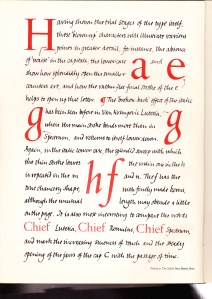 Having shown the trial stages of the type itself,
these 'blowing' characters will illustrate various
points in greater detail: for instance, the absence
of 'waist' in the capitals, the lowercase a and e
show how splendidly open the smaller
counters are, and how the
helps to open up that letter. The 'broken-back' effect of the italic
g has been seen before in Van Krimpen's Lutetia, g
where the main stroke bends more than in
Spectrum, and returns to itself lower down.
Again, in the italic lower case, the splendid sweep with which
the thin stroke leaves the main one in the h
is repeated in the m and n. The f has the
true chancery shape, with finely made horns,
although the unusual length, may obtrude a little
on the page. It is also most interesting to compare the words
Chief Lutetia, Chief Romulus, Chief Spectrum,
and mark the increasing sureness of touch and the steady
opening of the jaws of the cap C with the passage of time.
H
a e
g g
hf